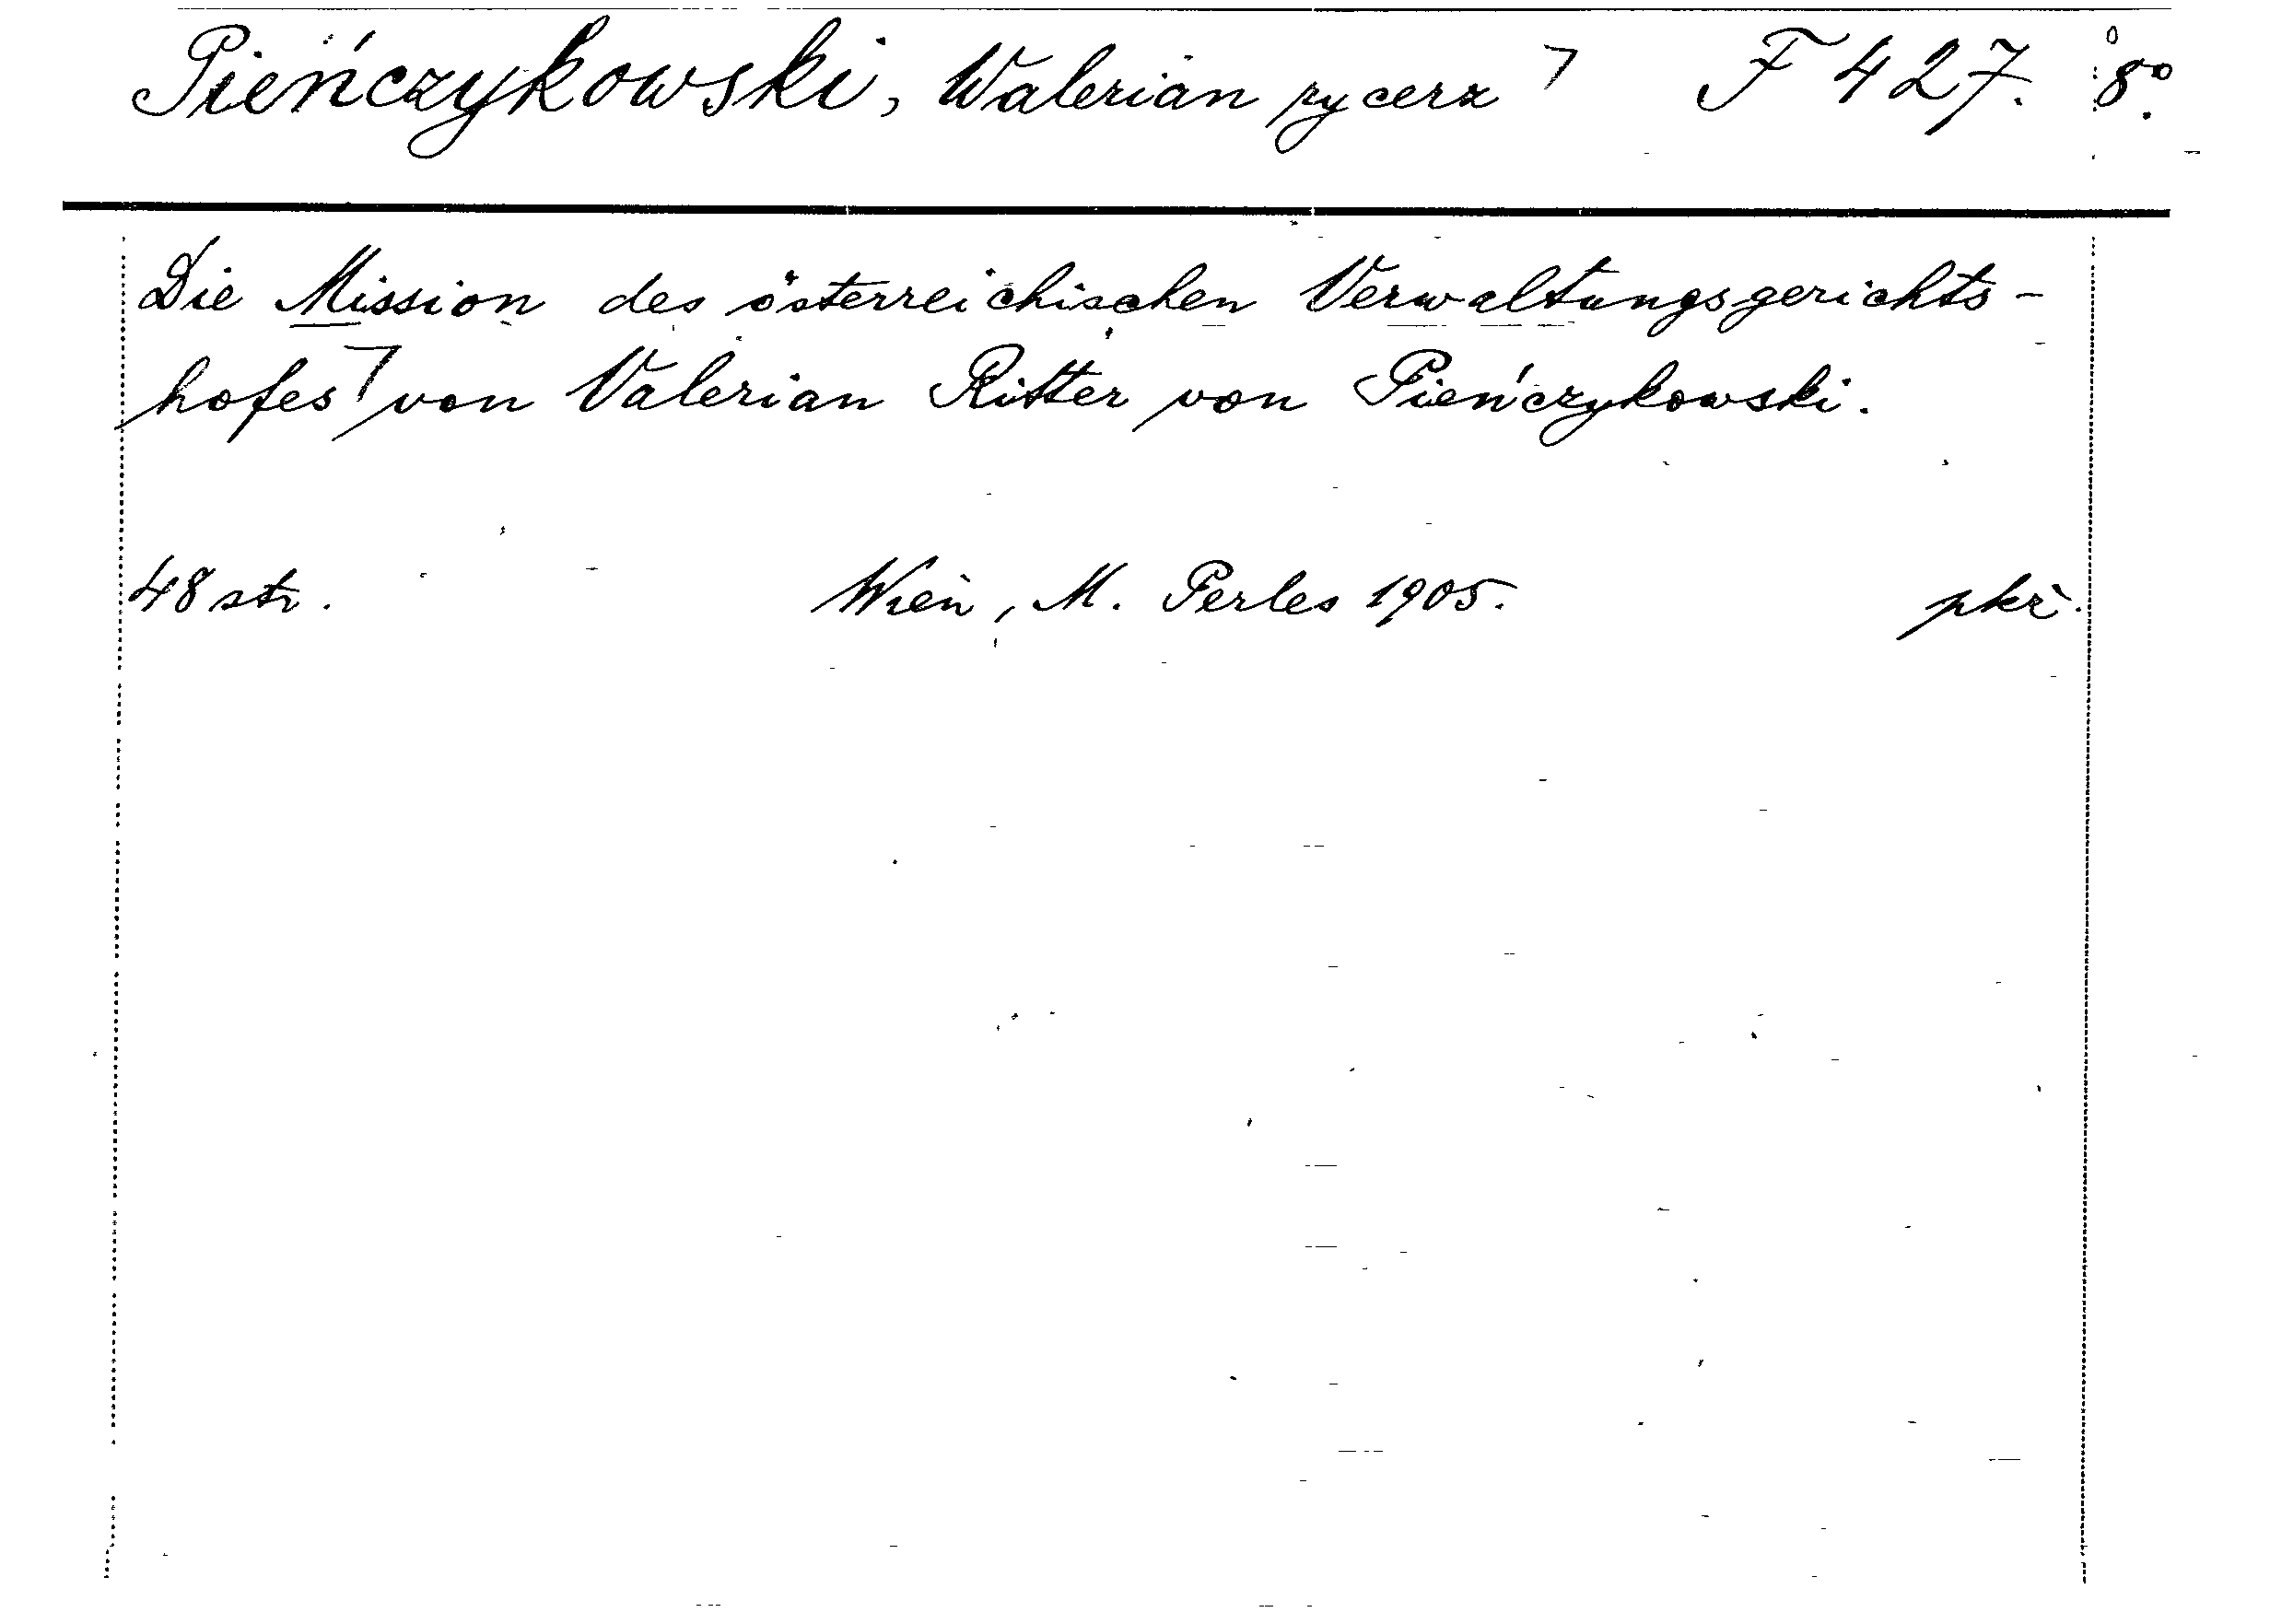 Pieńczykowski, Walerian rycerz ⁊ F 427. 8°.
Die Mission des österreichischen Verwaltungsgerichts-
hofes ⁊ von Valerian Ritter von Pieńczykowski.
48 str. Wien, M. Perles 1905. pkř.